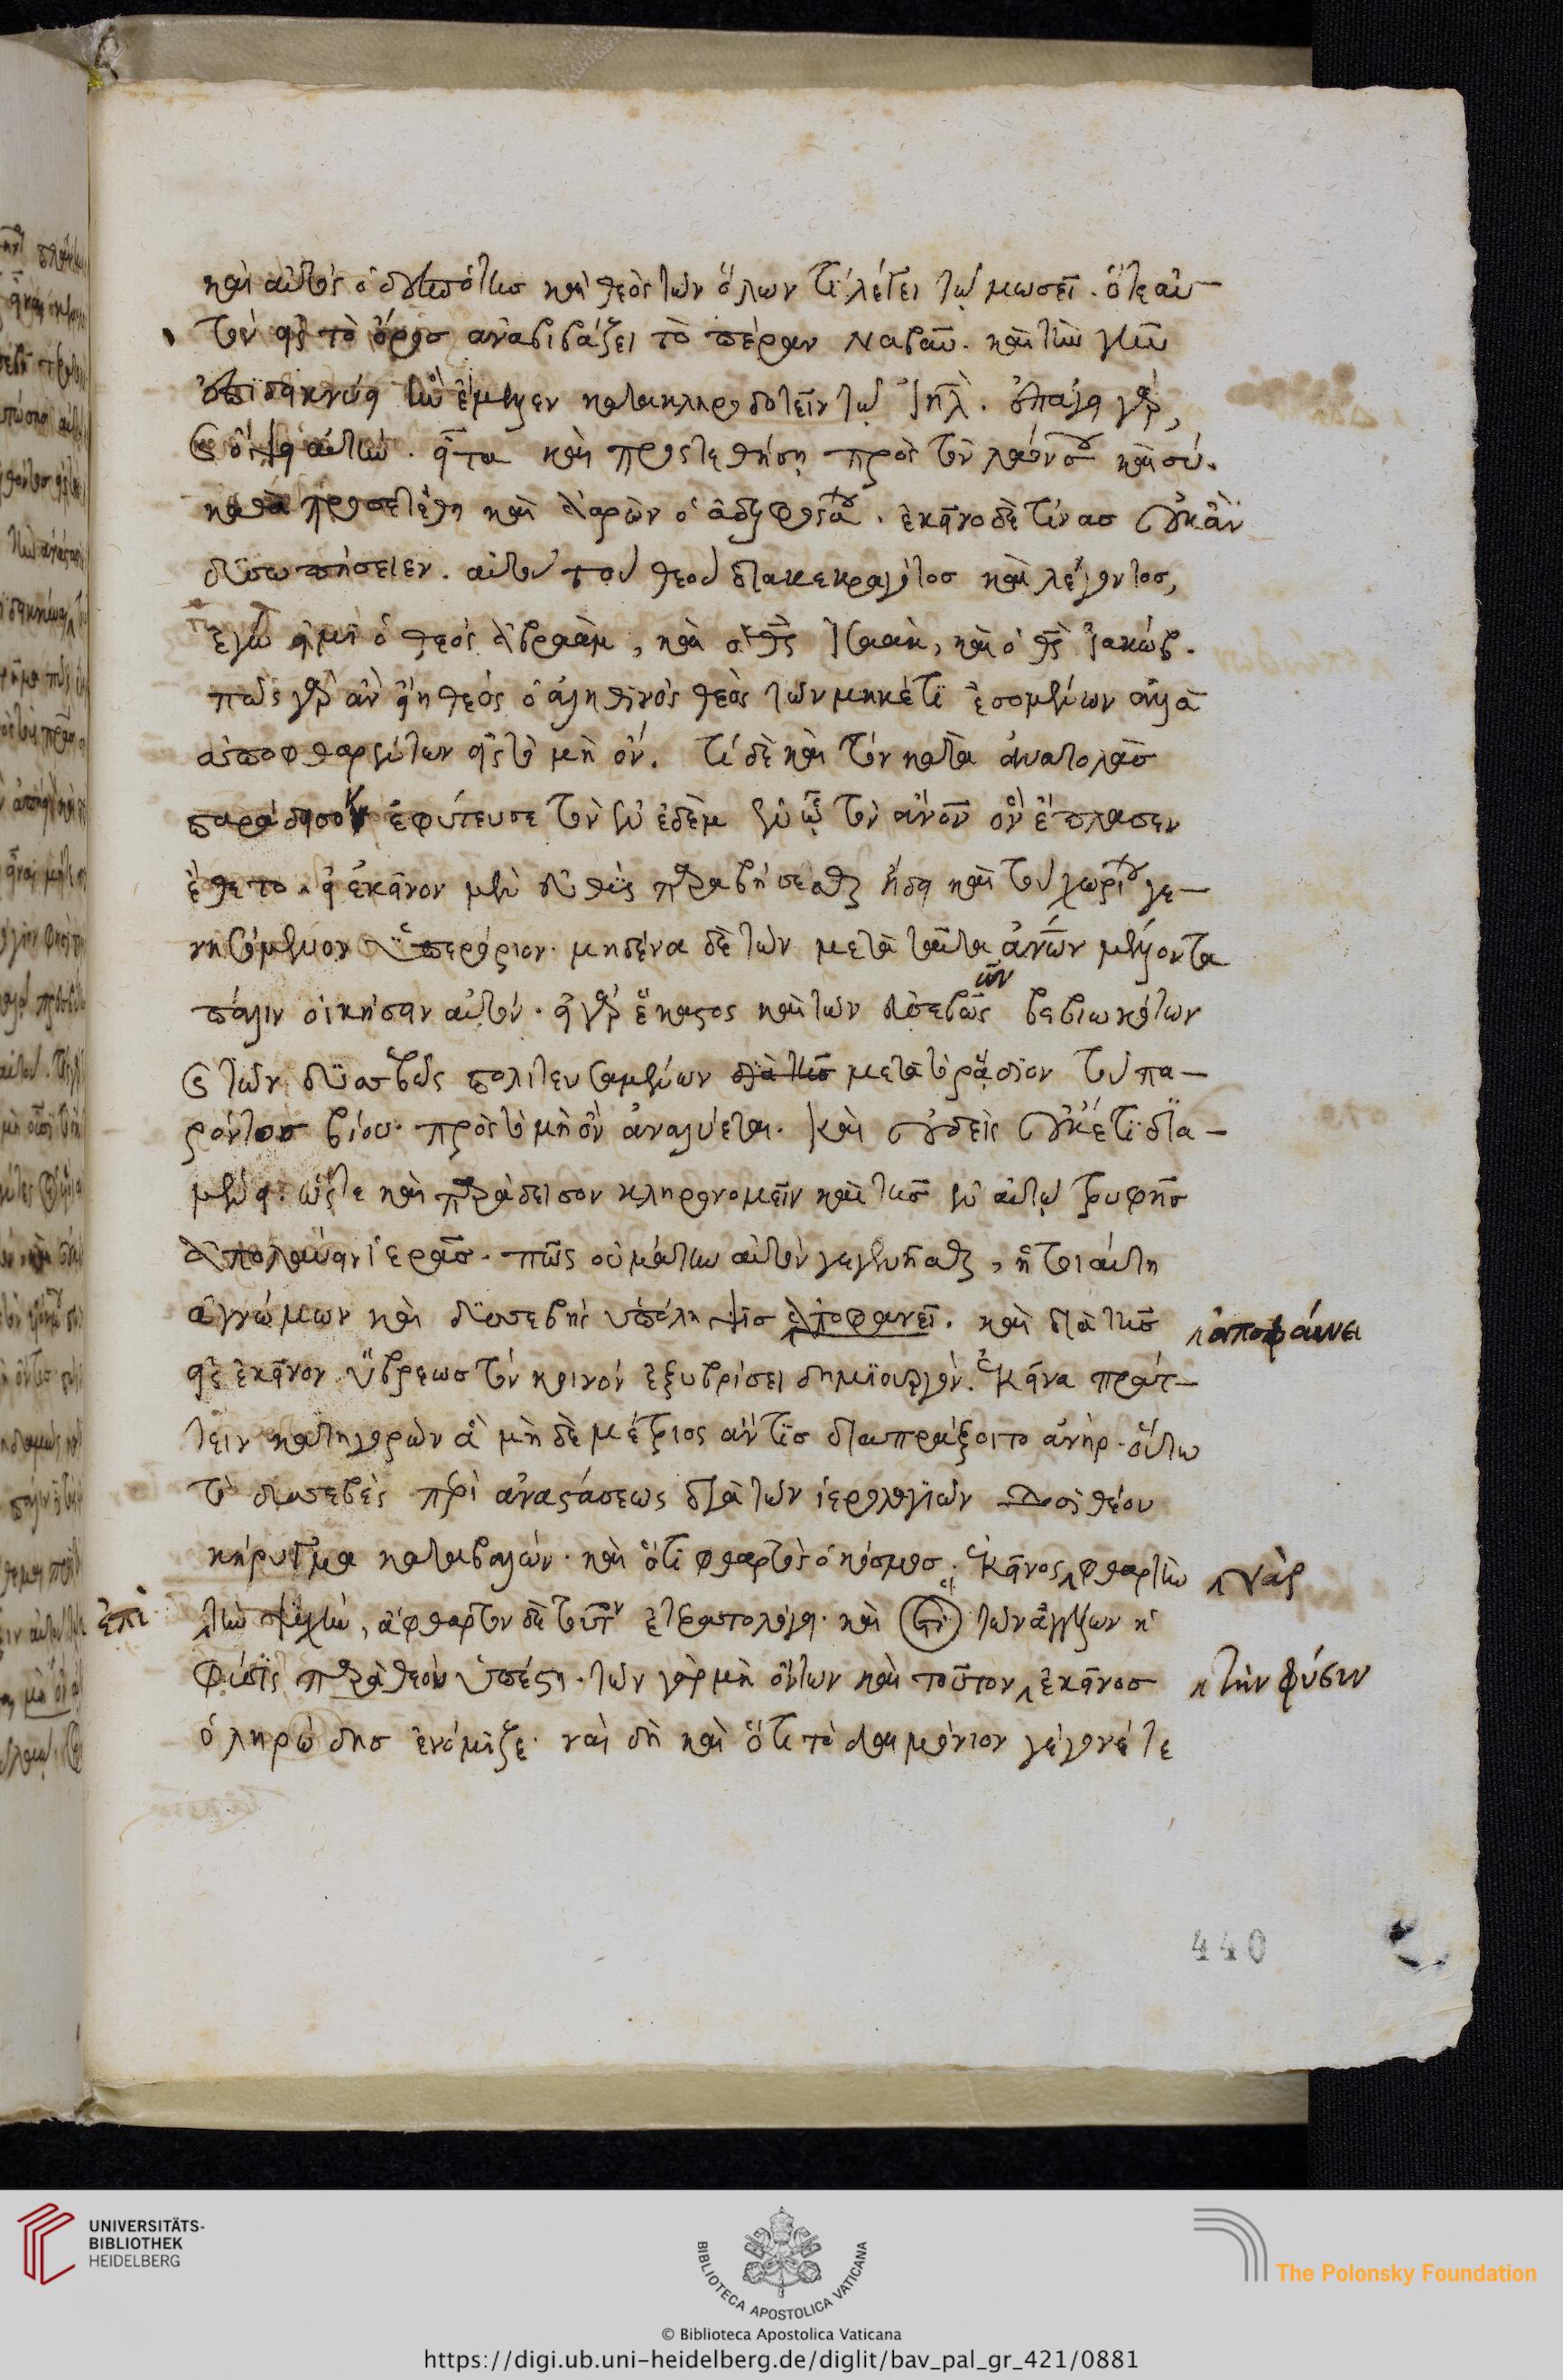 καὶ αὐτὸς ὁ δεσπότης καὶ θεὸς τῶν ὅλων τί λέγει τῷ μωσεῖ. ὅτε αὐ-
τὸν εἰς τὸ ὄρος ἀναβιβάζει τὸ πέραν ναβαῦ. καὶ τὴν γῆν
ἐπιδεικνύει ἣν ἔμελλεν κατακληροδοτεῖν τῷ ἰηλ. ἔπαγε γὰρ,
αὐτὴν. εἶτα καὶ προστεθήσῃ πρὸς τὸν λαόν σου καὶ σύ.
καθὰ προσετέθη καὶ ἀαρὼν ὁ ἀδελφός σου. ἐκεῖνο δὲ τίνας οὐκ ἂν
δυσωπήσειεν. αὐτοῦ τοῦ θεοῦ διακεκραγότος καὶ λέγοντος,
ἐγώ εἰμι ὁ θεὸς ἀβραὰμ, καὶ ὁ θς ἰσαὰκ, καὶ ὁ θς ἰακώβ.
πῶς γὰρ ἂν εἴη θεὸς ὁ ἀληθινὸς θεὸς τῶν μηκέτι ἐσομένων ἀλλὰ
ἀποφθαρέντων εἰς τὸ μὴ ὄν. τί δὲ καὶ τὸν κατὰ ἀνατολὰς
παράδεισον ἐφύτευσε τὸν ἐν ἐδὲμ ἐν ᾧ τὸν ἄνον ὃν ἔπλασεν
ἔθετο. εἰ ἐκεῖνον μὲν εὐθὺς παραβήσεσθαι ᾔδει καὶ τοῦ χωρίου γε-
νησόμενον ὑπερόριον. μηδένα δὲ τῶν μετὰ ταῦτα ἀνων μέλλοντα
πάλιν οἰκήσειν αὐτόν. εἰ γὰρ ἕκαστος καὶ τῶν εὐσεβῶς βεβιωκότων
καὶ τῶν δυσσεβῶς πολιτευσαμένων μετὰ τὸ ῥᾴδιον τοῦ πα-
ρόντος βίου πρὸς τὸ μὴ ὂν ἀναλύεται. καὶ οὐδεὶς οὐκέτι δια-
μένει. ὥστε καὶ παράδεισον κληρονομεῖν καὶ τῆς ἐν αὐτῷ τρυφῆς
ἀπολαύειν ἱερᾶς. πῶς οὐ μάτην αὐτὸν γεγενῆσθαι, ἡ τοιαύτη
ἀγνώμων καὶ δυσσεβὴς ὑπόληψις ἀποφανεῖ. καὶ διὰ τῆς ἀποφαίνει
εἰς ἐκεῖνον ὕβρεως τὸν κοινὸν ἐξυβρίσει δημιουργόν. ἐκεῖνα πράτ-
τειν κατηγορῶν ἃ μὴ δὲ μέτριος ἄν τις διαπράξοιτο ἀνήρ. οὕτω
τὸ δυσσεβὲς περὶ ἀναστάσεως διὰ τῶν ἱερολογιῶν δοσιθέου
κήρυγμα καταβαλών. καὶ ὅτι φθαρτὸς ὁ κόσμος. ἐκεῖνος φθαρτὴν γὰρ
ἐπὶ τὴν ψυχὴν, ἄφθαρτον δὲ τοῦτον ἐτερατολόγει. καὶ ὅτι τῶν ἀγγέλων ἡ
φύσις παρὰ θεὸν ὑπέστη. τῶν γὰρ μὴ ὄντων καὶ τοῦτον ἐκεῖνος τὴν φύσιν
ὁ ληρώδης ἐνόμιζε. ναὶ δὴ καὶ ὅτι τὸ δαιμόνιον γέγονέ τε
440
UNIVERSITÄTS-
BIBLIOTHEK
HEIDELBERG
BIBLIOTECA APOSTOLICA VATICANA
The Polonsky Foundation
© Biblioteca Apostolica Vaticana
https://digi.ub.uni-heidelberg.de/diglit/bav_pal_gr_421/0881